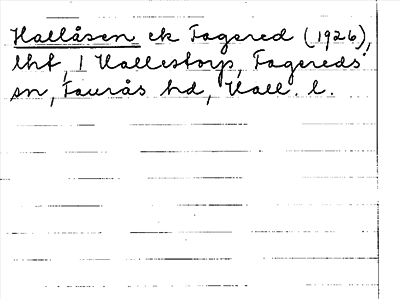 Hallåsen ek Fagered (1926),
lht, 1 Hallestorp, Fagereds
sn, Faurås hd, Hall. l.